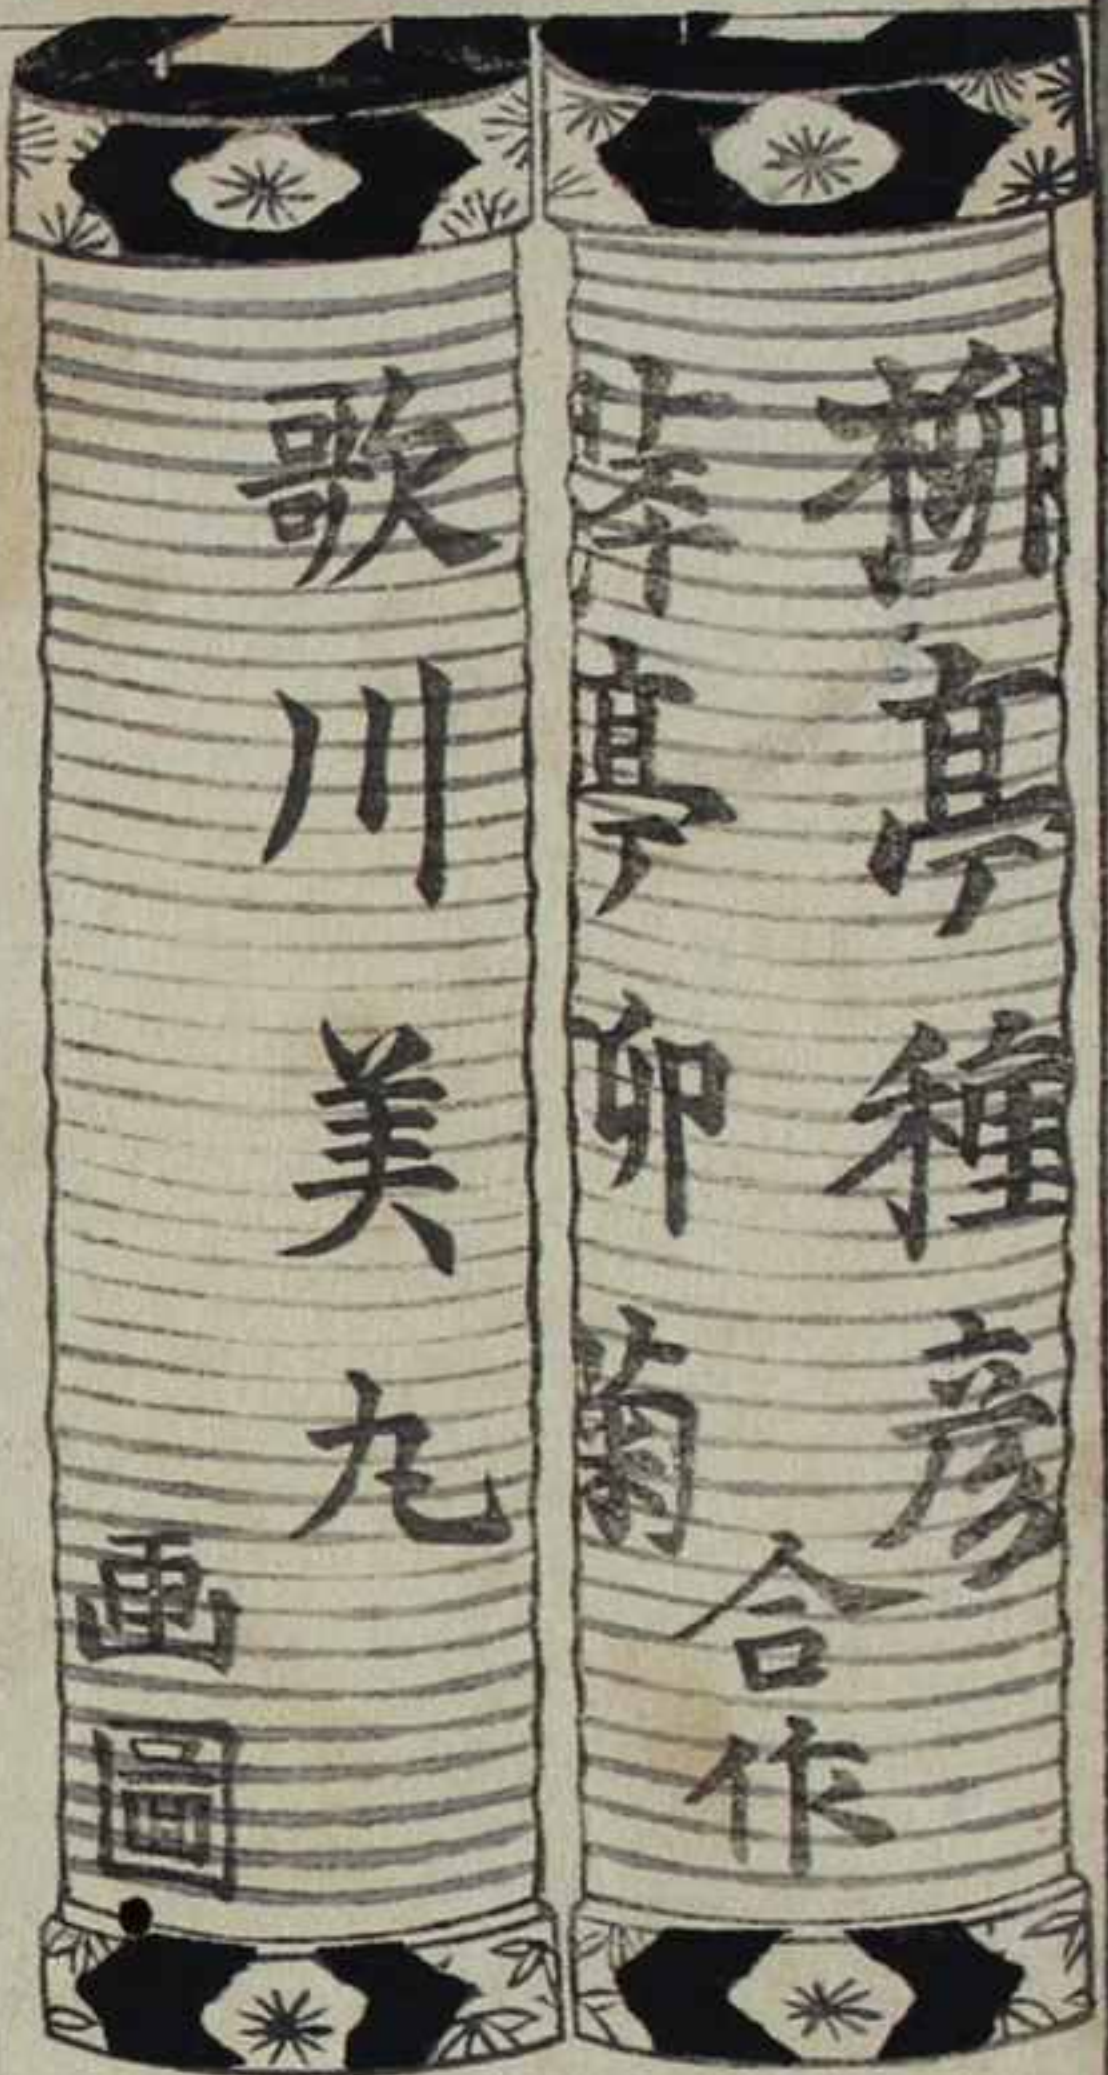 柳亭種彦
萍亭柳菊
合作
歌川美丸
画圖